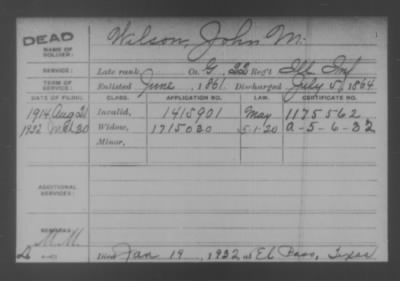 DEAD
Wilson, John M.
NAME OF SOLDIER:
SERVICE: Late rank, Co. G, 22 Reg't Ill Inf
TERM OF SERVICE: Enlisted June, 1861. Discharged July 5, 1864
DATE OF FILING. CLASS. APPLICATION NO. LAW. CERTIFICATE NO.
1914 Aug 21 Invalid, 1415901 May 1175562
1932 Widow, 1715030 5-1-20 A-5-6-32
Minor,
ADDITIONAL SERVICES:
REMARKS:
M.M.
Died Jan 19, 1932 at El Paso, Texas